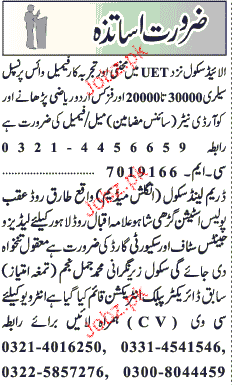 ضرورت اساتذہ
الائیڈ سکول نزد UET میں محنتی اور تجربہ کار فیمیل وائس پرنسپل
سیلری 30000 تا 20000 اور فزکس اور ریاضی پڑھانے اور
کوآرڈی نیٹر (سائنس مضامین) میل/فیمیل کی ضرورت ہے
رابطہ 0321-4456659
سی۔ایم۔ 7019166
ڈریم لینڈ سکول (انگلش میڈیم) واقع طارق روڈ عقب
پولیس اسٹیشن گڑھی شاہو علامہ اقبال روڈ لاہور کیلئے لیڈیز و
جینٹس سٹاف اور سکیورٹی گارڈ کی ضرورت ہے معقول تنخواہ
دی جائے گی سکول زیر نگرانی محمد جمل نجم (تمغہ امتیاز)
سابق ڈائریکٹر پبلک انسٹرکشن قائم کیا گیا ہے انٹرویو کیلئے
سی وی (CV) ہمراہ لائیں برائے رابطہ
0321-4016250, 0331-4541546,
0322-5857276, 0300-8044459